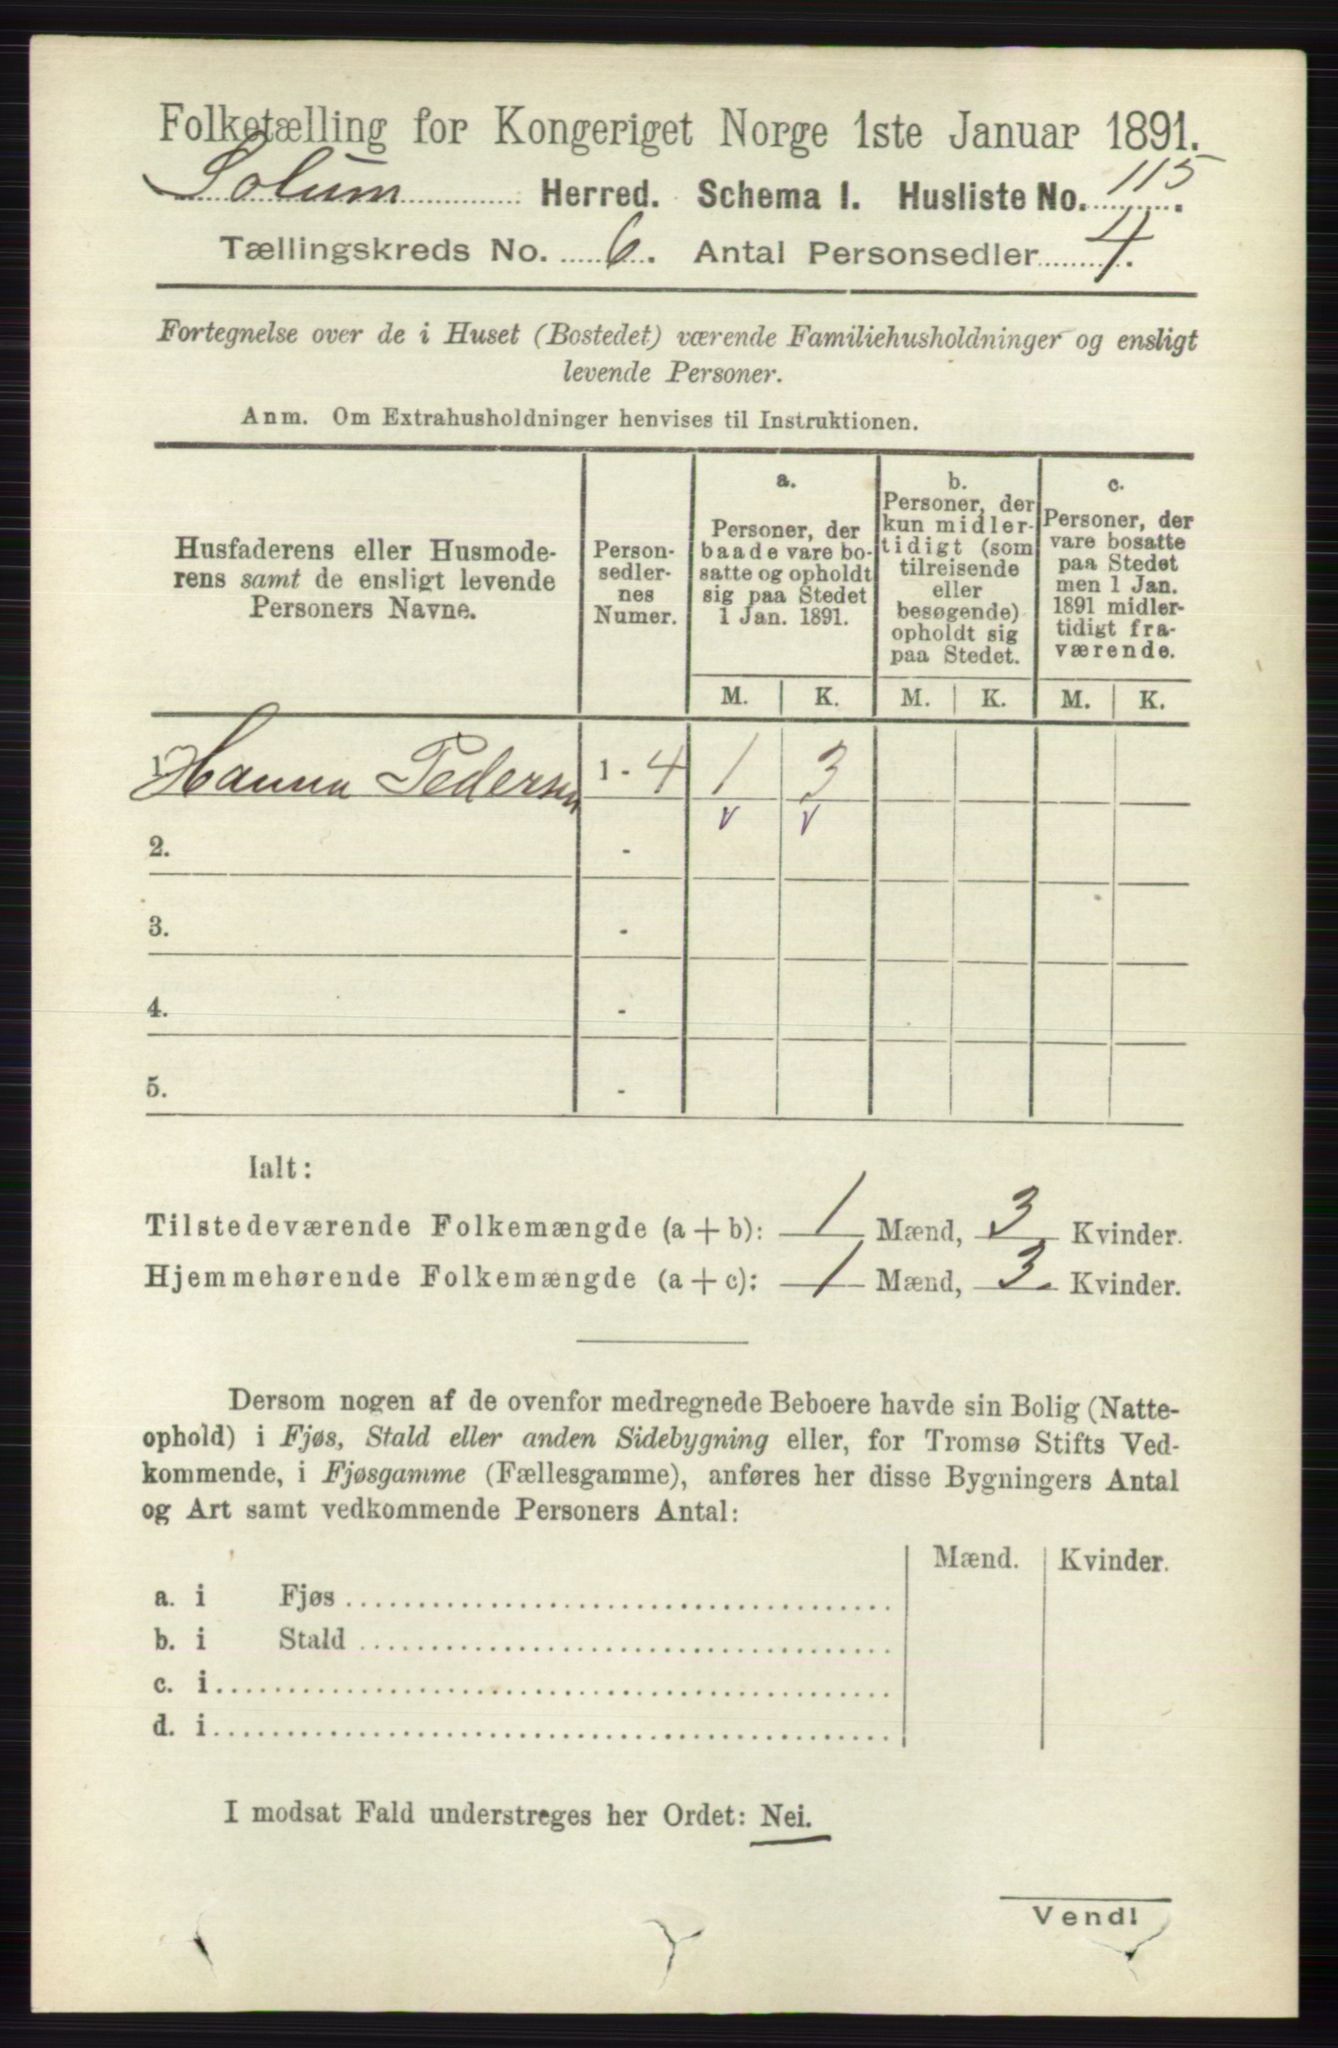 Folketælling for Kongeriget Norge 1ste Januar 1891.
Solum Herred. Schema I. Husliste No. 115.
Tællingskreds No. 6. Antal Personsedler 4.
Fortegnelse over de i Huset (Bostedet) værende Familiehusholdninger og ensligt
levende Personer.
Anm. Om Extrahusholdninger henvises til Instruktionen.
Husfaderens eller Husmode-
rens samt de ensligt levende
Personers Navne.
Person-
sedler-
nes
Numer.
a.
Personer, der
baade vare bo-
satte og opholdt
sig paa Stedet
1 Jan. 1891.
b.
Personer, der
kun midler-
tidigt (som
tilreisende
eller
besøgende)
opholdt sig
paa Stedet.
c.
Personer, der
vare bosatte
paa Stedet
men 1 Jan.
1891 midler-
tidigt fra-
værende.
M. K. M. K. M. K.
1. Hanna Pedersen 1 - 4 1 3
v v
2. -
3. -
4. -
5. -
Ialt:
Tilstedeværende Folkemængde (a + b): 1 Mænd, 3 Kvinder.
Hjemmehørende Folkemængde (a + c): 1 Mænd, 3 Kvinder.
Dersom nogen af de ovenfor medregnede Beboere havde sin Bolig (Natte-
ophold) i Fjøs, Stald eller anden Sidebygning eller, for Tromsø Stifts Ved-
kommende, i Fjøsgamme (Fællesgamme), anføres her disse Bygningers Antal
og Art samt vedkommende Personers Antal:
Mænd. Kvinder.
a. i Fjøs
b. i Stald
c. i
d. i
I modsat Fald understreges her Ordet: Nei.
Vend!